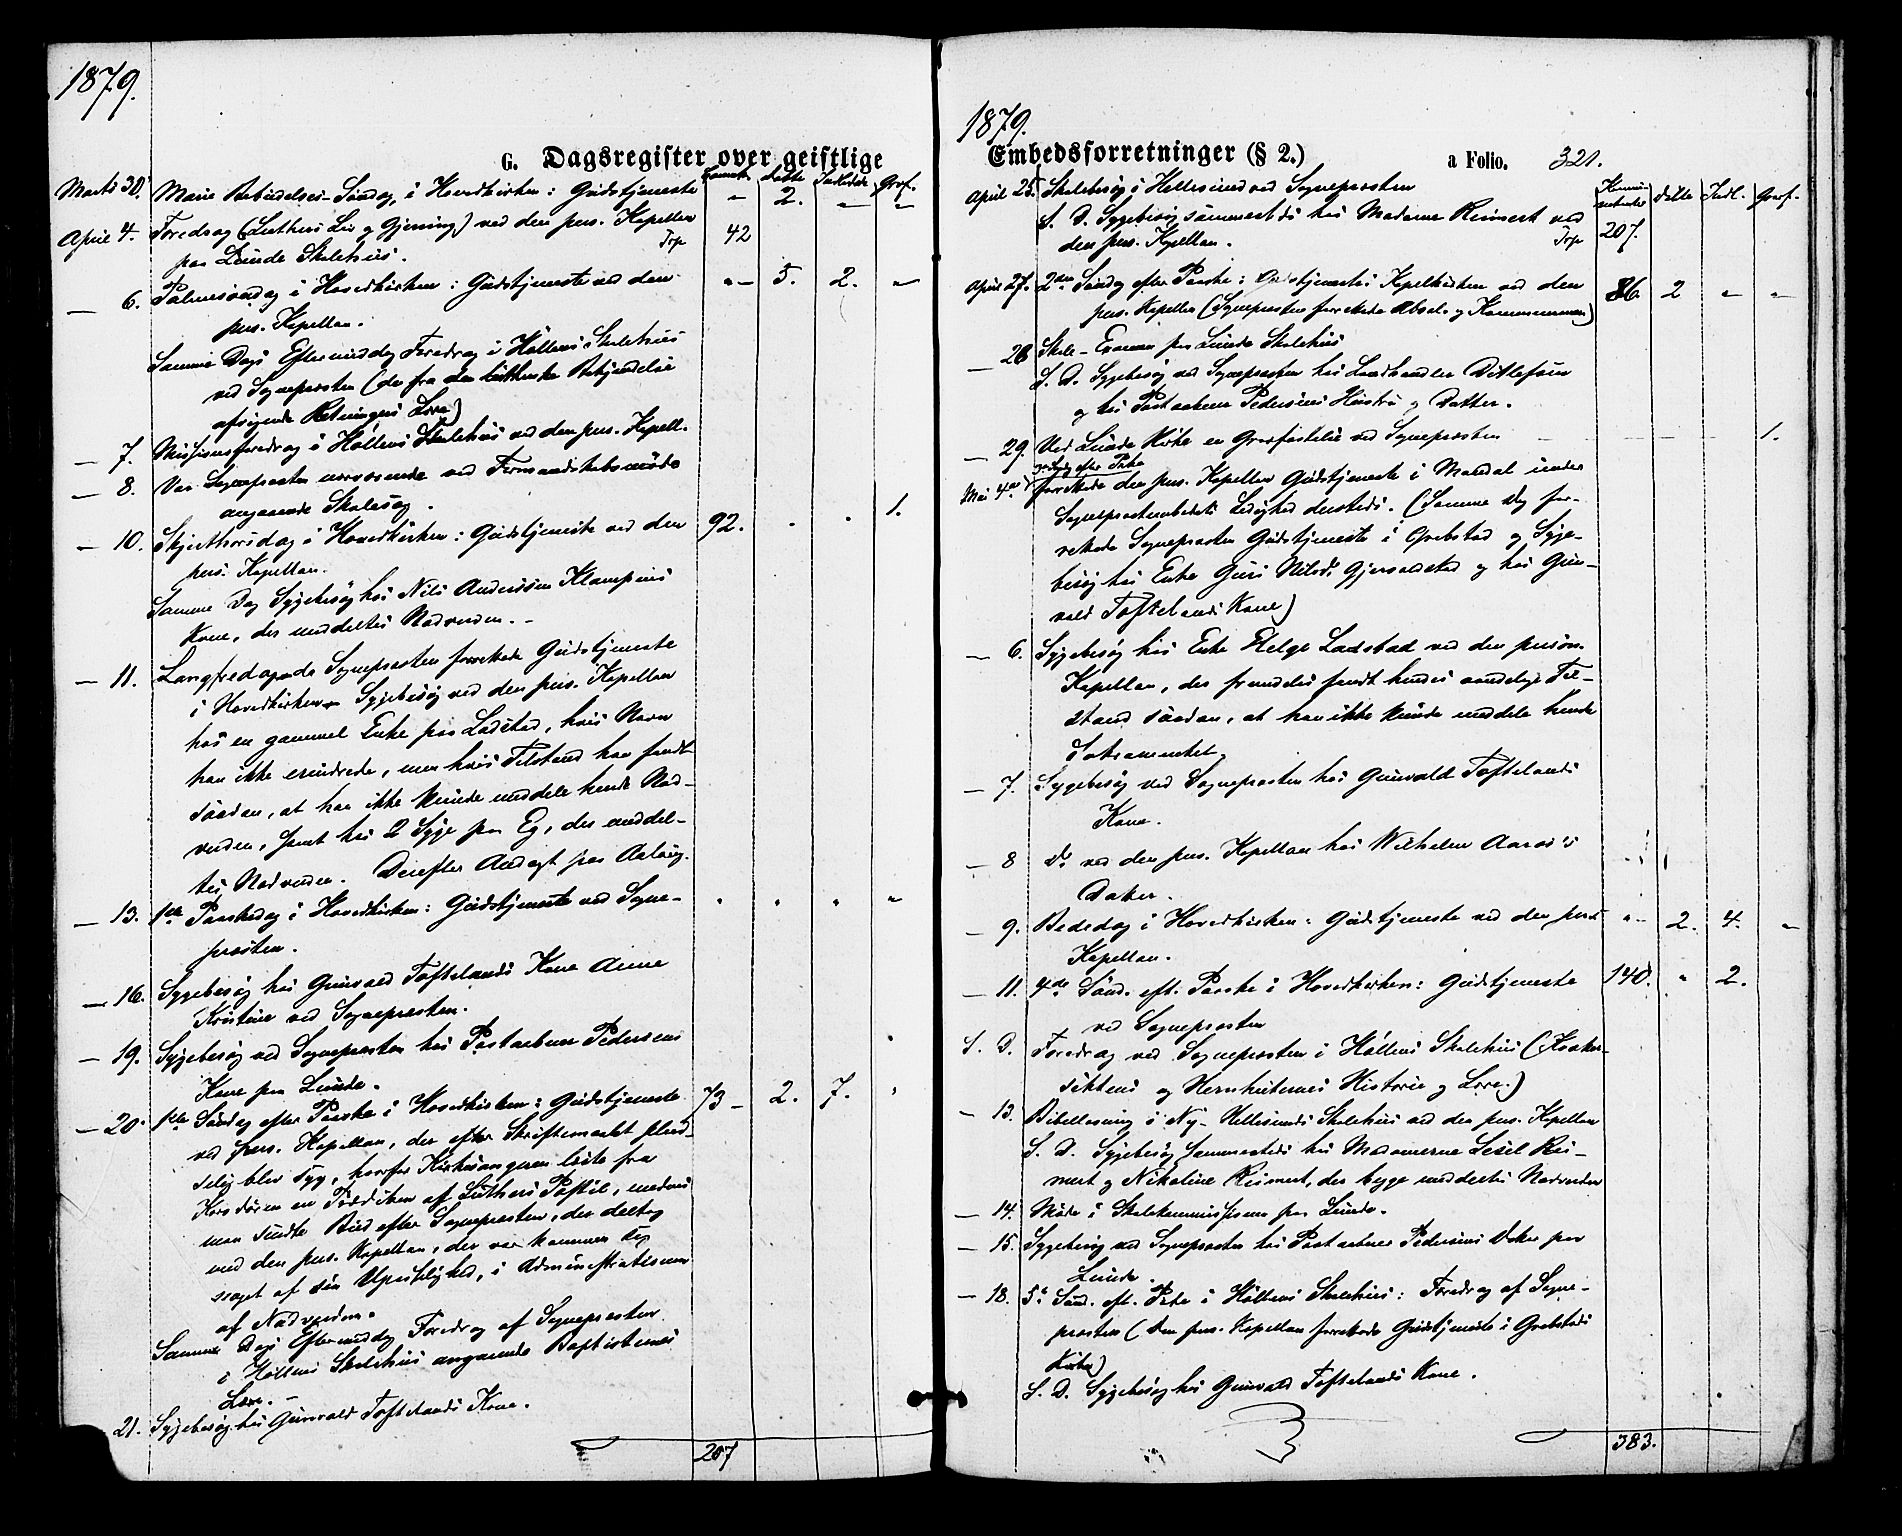 1879.
G. Dagsregister over geistlige
Commun. Døbte Indledte Graf.
Marts 30. Mariæ Bebudelses-Søndag, i Hovedkirken: Gudstjeneste - 2. - -
April 4. Foredrag (Luthers Liv og Gjerning) ved den pers. Kapellan
paa Lunde Skolehus. Trp 42
— 6. Palmesøndag i Hovedkirken: Gudstjeneste ved den - 5. 2. -
pers. Kapellan.
Samme Dags Eftermiddag Foredrag i Høllens Skolehus
ved Sognepræsten (de fra den lutherske Bekjendelse
afvigende Retningers Lære)
— 7. Missionsforedrag i Høllens Skolehus ved den pers. Kapell.
— 8. Var Sognepræsten nærværende ved Formandskabsmøde
angaaende Skolesag. 1.
— 10. Skjærthorsdag i Hovedkirken: Gudstjeneste ved den 92. . .
pers. Kapellan.
Samme Dag Sygebesøg hos Nils Anderssen Klampens
Kone, der meddeltes Nadveren. -
— 11. Langfredag Sognepræsten forrettede Gudstjeneste
i Hovedkirken Sygebesøg ved den pers. Kapellan
hos en gammel Enke paa Ladstad, hvis Navn
han ikke erindrede, men hvis Tilstand han fandt
saadan, at han ikke kunde meddele hende Nad-
veren, samt hos 2 Syge paa Eg, der meddel-
tes Nadveren. Derefter Andagt paa
— 13. 1ste Paaskedag i Hovedkirken: Gudstjeneste ved Sogne- . . . -
præsten.
— 16. Sygebesøg hos Gunvald Toftelands Kone Anne
Kristine ved Sognepræsten.
— 19. Sygebesøg ved Sognepræsten hos Postaabner Pedersens
Kone paa Lunde.
— 20. 1ste Søndag efter Paaske i Hovedkirken: Gudstjeneste 73 - 2. 7. .
ved pers. Kapellan, der efter Skriftemaalet plud-
selig blev syg, hvorfor Kirkesangeren læste fra
Kordøren en Prædiken af Luthers Postil, medens
man sendte Bud efter Sognepræsten, der deltog
med den pers. Kapellan, der var kommen sig
noget af sin Upasselighed, i Administrationen
af Nadveren.
Samme Dags Eftermiddag Foredrag af Sognepræsten
i Høllens Skolehus angaaende Baptisternes
Lære. -
21. Sygebesøg hos Gunvald Toftelands Kone.
207
1879.
Embedsforretninger (§ 2.) a Folio. 321.
Kommunikanter Døbte Indl. Graf.
April 25. Skolebesøg i Hellesund ved Sognepræsten
S. D. Sygebesøg sammesteds hos Madame Reimert ved
den pers. Kapellan. Trp 207.
April 27. 2den Søndag efter Paaske: Gudstjeneste i Kapelkirken ved den 86 2 - -
pers. Kapellan (Sognepræsten forrettede Absol. og Kommunionen)
— 28 Skole-Examen paa Lunde Skolehus
S. D. Sygebesøg ved Sognepræsten hos Landhandler Ditlefsen
og hos Postaabner Pedersens Hustru og Datter.
— 29. Ved Lunde Kirke en Gravfæstelse ved Sognepræsten 1.
Mai 4de 3die Søndag efter Paaske
forrettede den pers. Kapellan Gudstjeneste i Mandal under
Sognepræstembedets Ledighed dersteds. (Samme Dag for-
rettede Sognepræsten Gudstjeneste i Grebstad og Syge-
besøg hos Enke Guri Nilsd. og hos Gun-
vald Toftelands Kone)
— 6. Sygebesøg hos Enke Helge Ladstad ved den person.
Kapellan, der fremdeles fandt hendes aandelige Til-
stand saadan, at han ikke kunde meddele hende
Sakramentet.
— 7. Sygebesøg ved Sognepræsten hos Gunvald Toftelands
Kone.
— 8 Do ved den pers. Kapellan hos Wilhelm Aarøs's
Datter.
— 9. Bededag i Hovedkirken: Gudstjeneste ved den pers. - 2. 4. -
Kapellan.
— 11. 4de Sønd. eft. Paaske i Hovedkirken: Gudstjeneste 140. - 2.
ved Sognepræsten
S. D. Foredrag ved Sognepræsten i Høllens Skolehus (Kvæker-
sektens og Hernhuternes Historie og Lære.)
— 13. Bibellæsning i Ny-Hellesunds Skolehus ved den pers. Kapellan
S. D. Sygebesøg sammesteds hos Madamerne Lesel Rei-
mert og Nikoline Reimert, der begge meddeltes Nadveren
— 14. Møde i Skolekommissionen paa Lunde.
— 15. Sygebesøg ved Sognepræsten hos Postaabner Pedersens Datter paa
Lunde.
— 18. 5te Sønd. eft. Paaske i Høllens Skolehus: Foredrag af Sogne-
præsten (den pers. Kapellan forrettede Gudstjeneste i Grebstads
Kirke)
S. D. Sygebesøg hos Gunvald Toftelands Kone.
383.